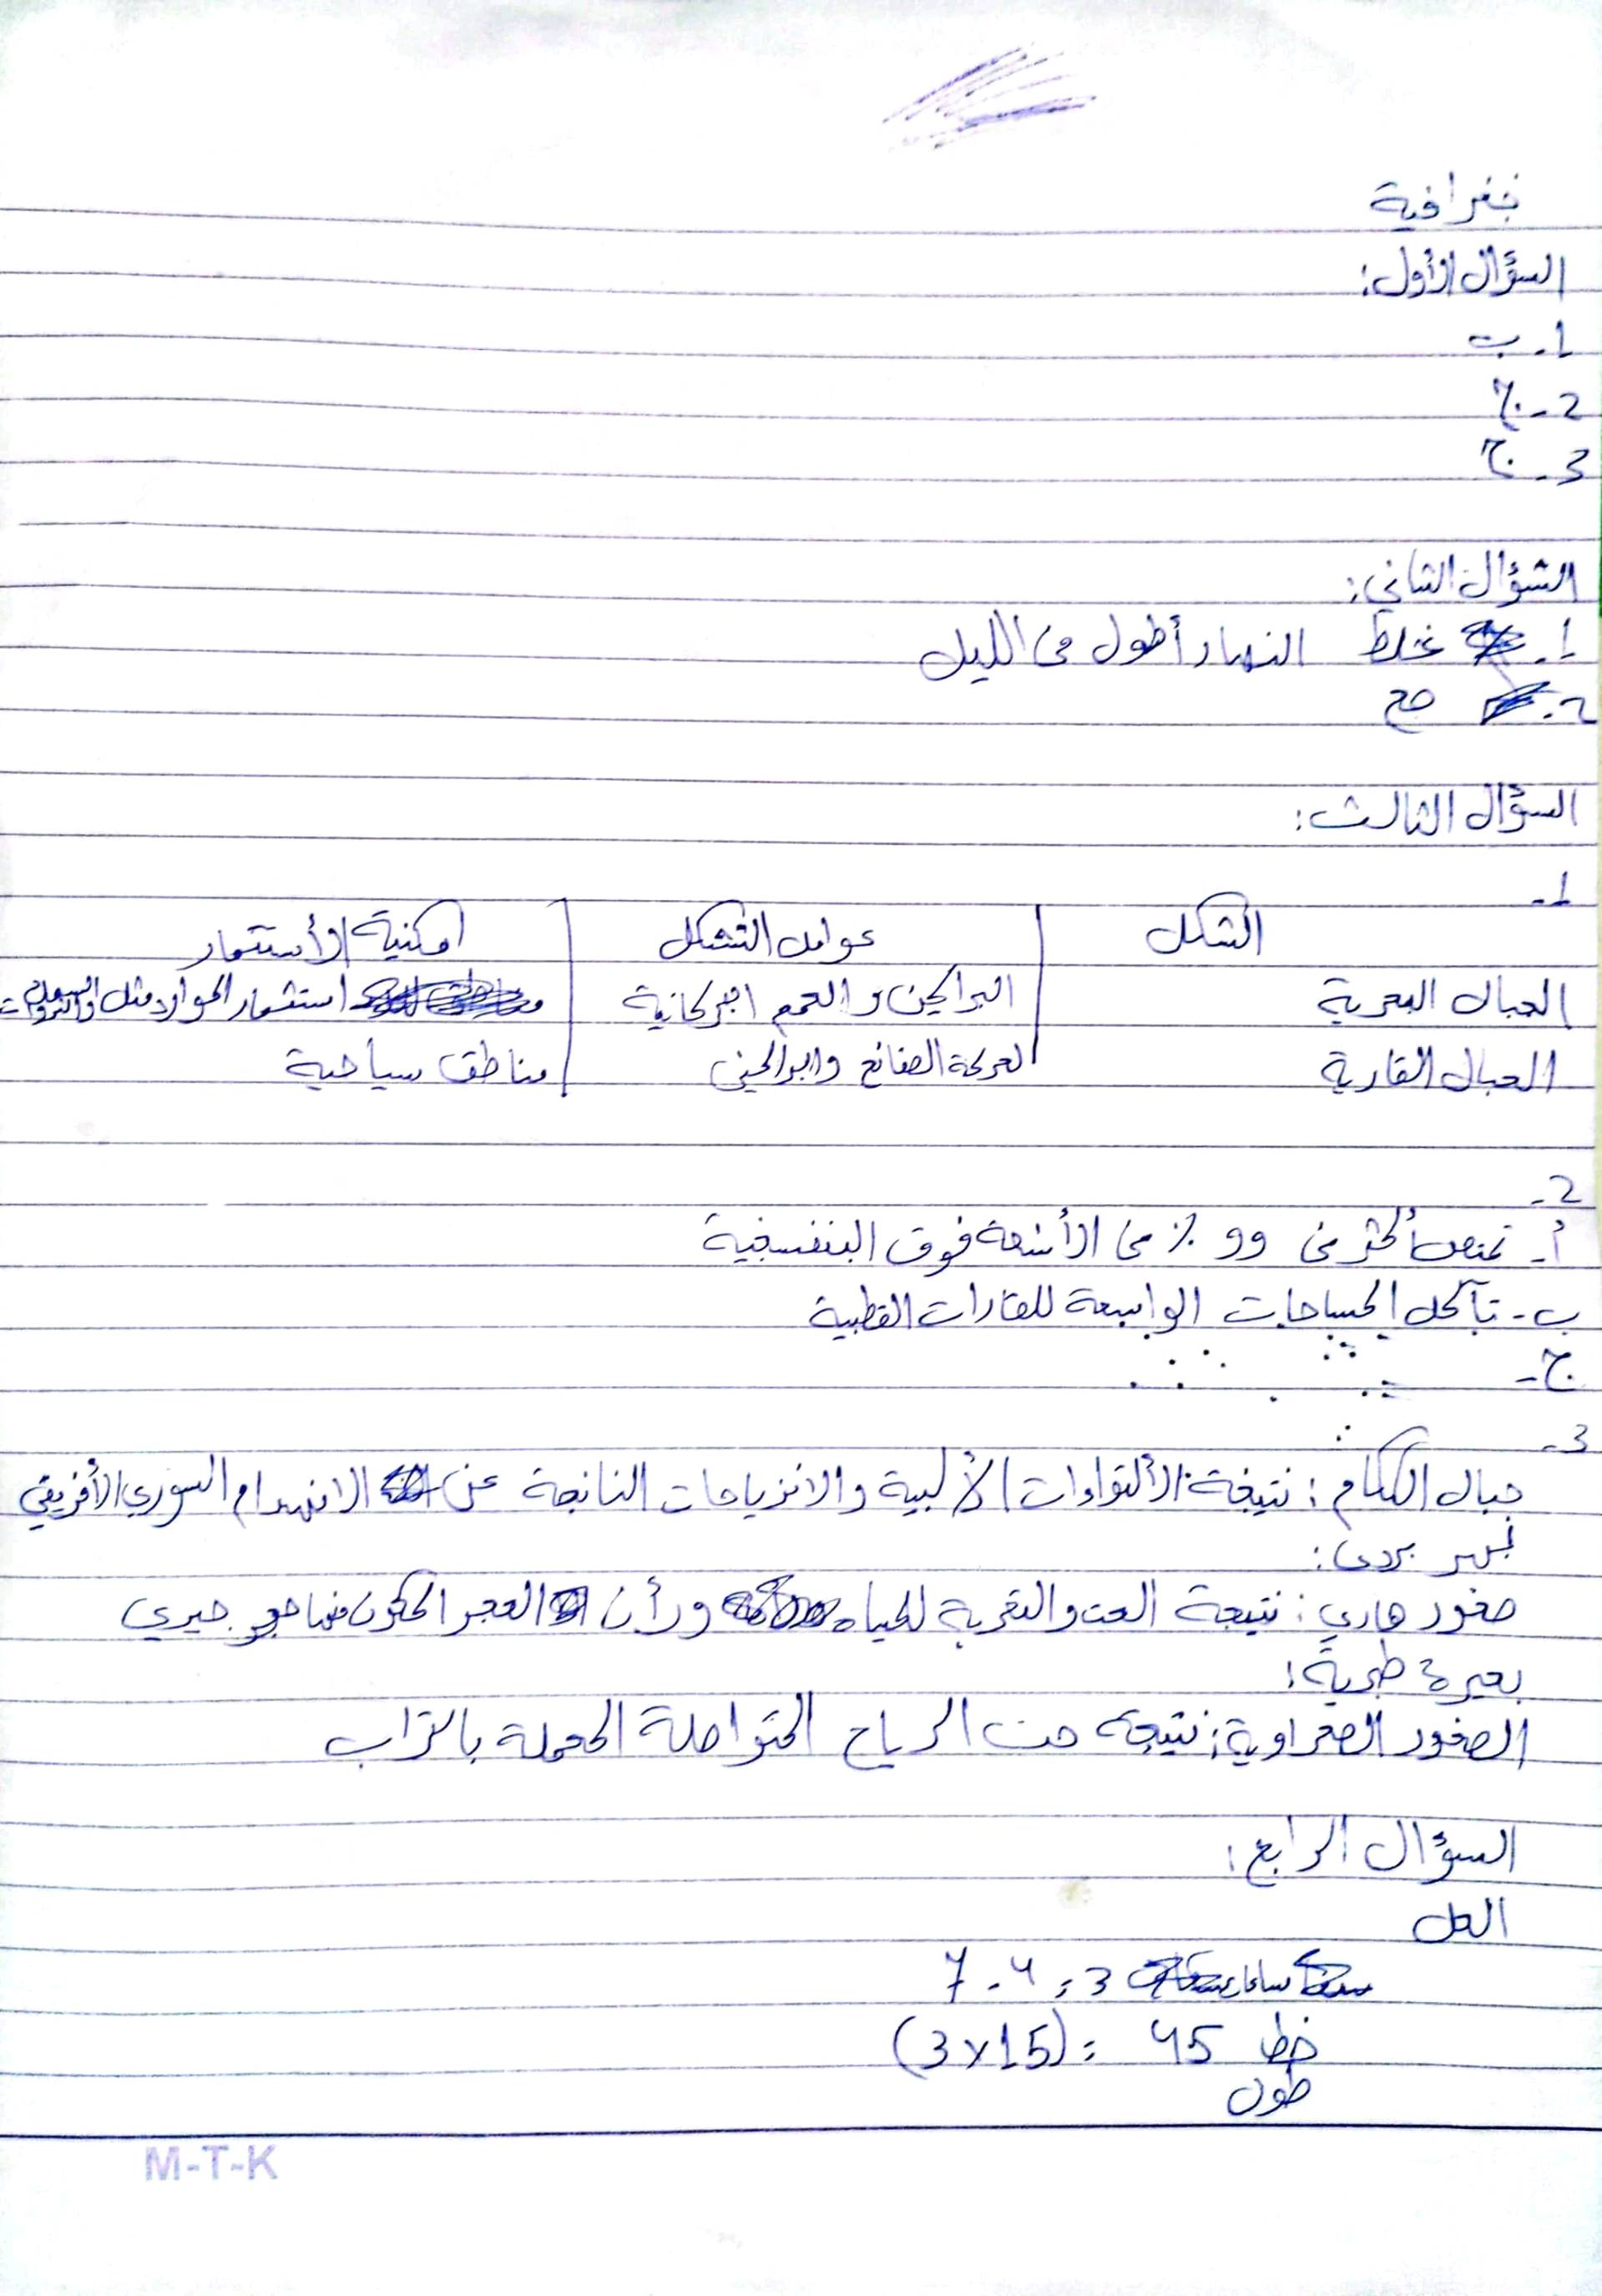 جغرافية
السؤال الأول:
1- ب
2- ج
3- ج
السؤال الثاني:
1- غلط النهار أطول من الليل
2- صح
السؤال الثالث:
1-
الشكل | عوامل التشكل | امكنية الأستثمار
الجبال البحرية | البراكين والحمم البركانية | استثمار الموارد مثل والثروات
الجبال القارية | لحركة الصفائح والبراكين | مناطق سياحية
2-
أ- تمتص أكثر من 99 % من الأشعة فوق البنفسجية
ب- تآكل المساحات الواسعة للقارات القطبية
ج-
3-
جبال اللكام: نتيجة الألتواءات الألبية والانزياحات الناتجة عن الانهدام السوري الأفريقي
نهر بردى:
صخور هاري: نتيجة الحت والتعرية للمياه ورأن الحجر المكون منها حجر جيري
بحيرة طبرية:
الصخور الصحراوية: نتيجة حت الرياح المتواصلة المحملة بالتراب
السؤال الرابع:
الحل
7 - 4 = 3
(3x15) = 45 خط
طول
M-T-K